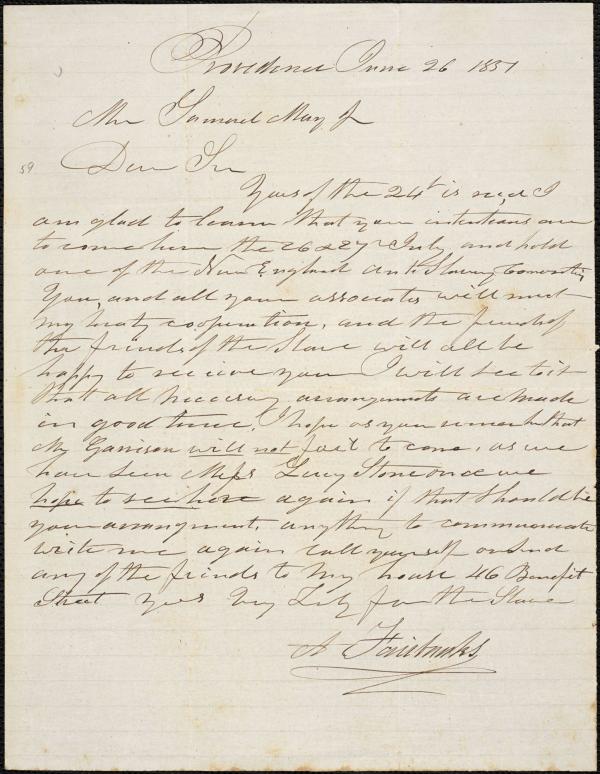 Providence June 26 1851
Mr Samuel May Jr
59
Dear Sir
Yours of the 24t is recd I
am glad to learn that your intentions are
to come here the 26 & 27 July and hold
one of the New England Anti Slavery Convention
You, and all your associates will meet
my hearty cooperation, and the friends of
the friends of the Slave will all be
happy to receive you I will see to it
that all necessary arrangments are made
in good time, I hope as you remark that
Mr Garrison will not fail to come, as we
have seen Miss Lucy Stone once we
hope to see her again if that should be
your arrangment, anything to communicate
write me again call yourself or send
any of the friends to my house 46 Benefit
Street Yours for Liberty for the Slave
A Fairbanks